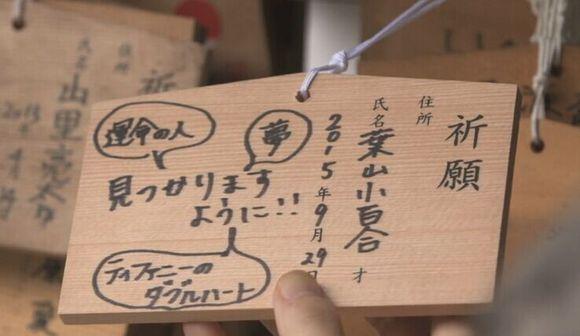 祈願
住所
氏名 葉山小百合 才
2015年9月29日
夢
運命の人
見つかります
ように!!
ティファニーの
ダブルハート
祈
住所
氏名 山里亮太